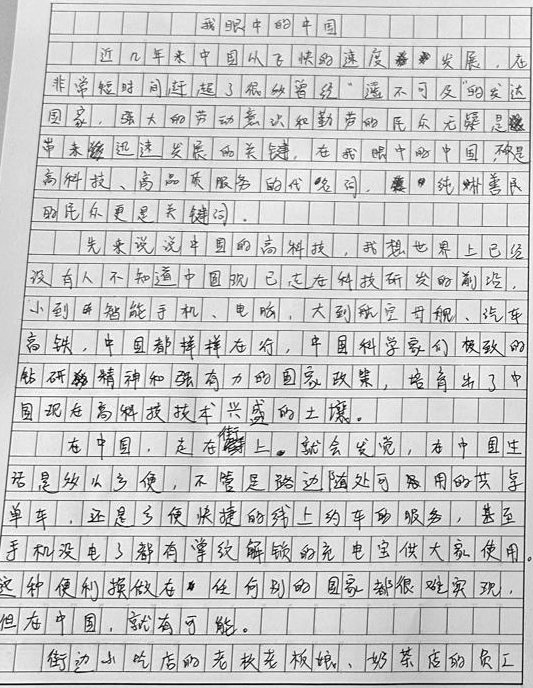 我眼中的中国
近几年来中国以飞快的速度发展，在
非常短时间赶超了很多曾经“遥不可及”的发达
国家，强大的劳动意识和勤劳的民众无疑是
带来迅速发展的关键，在我眼中的中国，是
高科技、高品质服务的代名词，纯朴善良
的民众更是关键词。
先来说说中国的高科技，我想世界上已经
没有人不知道中国现已走在科技研发的前沿，
小到智能手机、电脑，大到航空母舰、汽车
高铁，中国都样样在行，中国科学家们极致的
钻研精神和强有力的国家政策，培育出了中
国现在高科技技术兴盛的土壤。
在中国，走在街上，就会发觉，在中国生
活是多么方便，不管是路边随处可用的共享
单车，还是方便快捷的线上约车服务，甚至
手机没电了都有掌纹解锁的充电宝供大家使用。
这种便利换做在任何别的国家都很难实现，
但在中国，就有可能。
街边小吃店的老板老板娘、奶茶店的员工